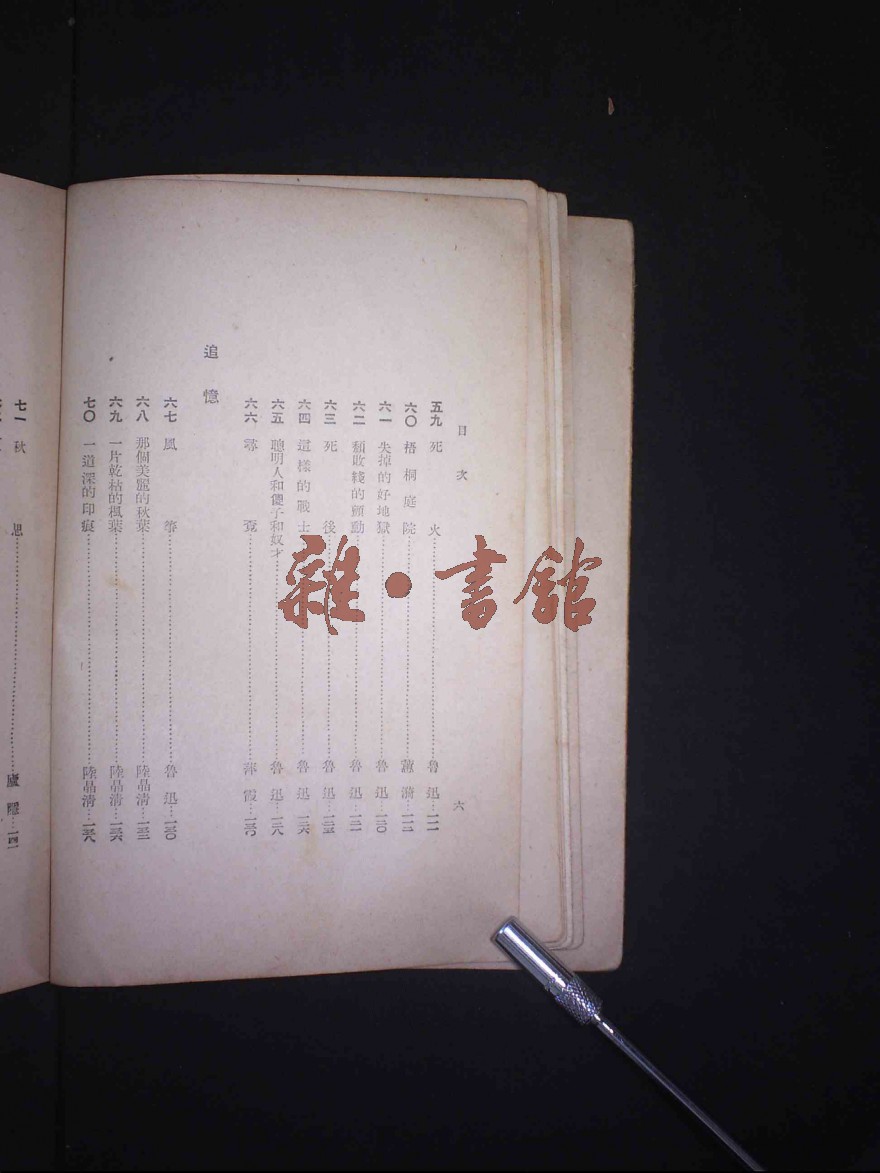 目次 六
五九 死火 魯迅 一一一
六〇 梧桐庭院 蕙漪 一一二
六一 失掉的好地獄 魯迅 一二〇
六二 頹敗綫的顫動 魯迅 一二一
六三 死後 魯迅
六四 這樣的戰士 魯迅 一二六
六五 聰明人和傻子和奴才 魯迅 一二八
六六 尋覓 萍霞
追憶
六七 風箏 魯迅
六八 那個美麗的秋葉 陸晶清
六九 一片乾枯的楓葉 陸晶清
七〇 一道深的印痕 陸晶清
七一 秋思 廬隱
雜·書館